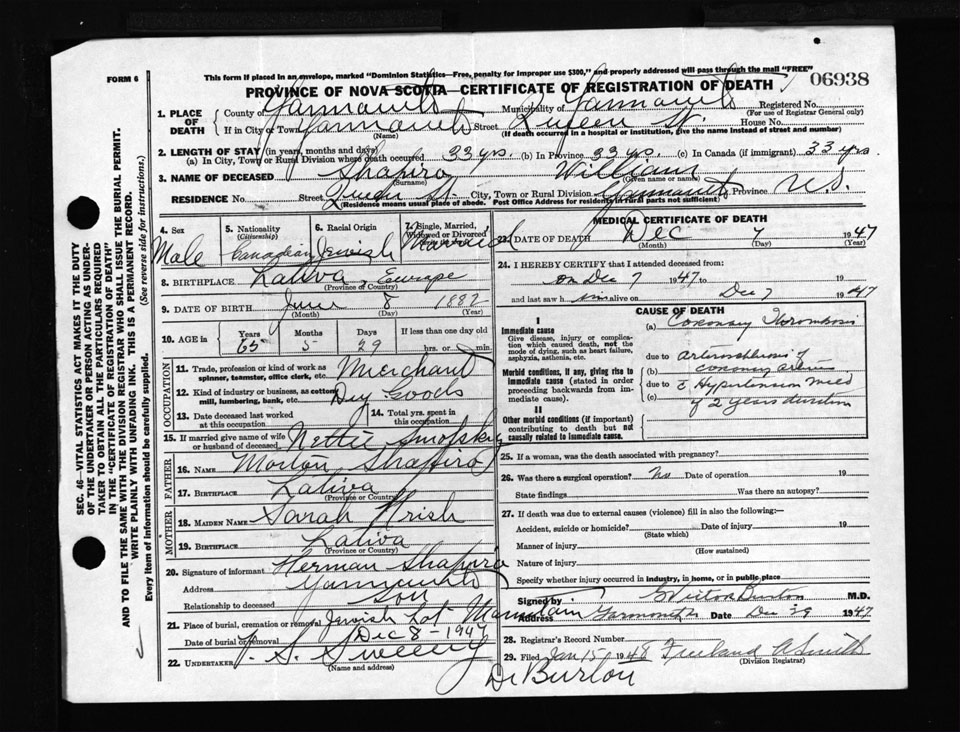 FORM 6
This form if placed in an envelope, marked "Dominion Statistics—Free, penalty for improper use $300," and properly addressed will pass through the mail "FREE"
PROVINCE OF NOVA SCOTIA—CERTIFICATE OF REGISTRATION OF DEATH
06938
1. PLACE OF DEATH County of Yarmouth Municipality of Yarmouth Registered No.
(For use of Registrar General only)
If in City or Town Yarmouth Street Queen St. House No.
(Name) (If death occurred in a hospital or institution, give the name instead of street and number)
2. LENGTH OF STAY (in years, months and days)
(a) In City, Town or Rural Division where death occurred 33 yrs. (b) In Province 33 yrs. (c) In Canada (if immigrant) 33 yrs
3. NAME OF DECEASED Shapiro William
(Surname) (Given name or names)
RESIDENCE No. Street Queen St. City, Town or Rural Division Yarmouth Province N.S.
(Residence means usual place of abode. Post Office Address for residents in rural parts not sufficient)
4. Sex Male
5. Nationality (Citizenship) Canadian
6. Racial Origin Jewish
7. Single, Married, Widowed or Divorced Married
8. BIRTHPLACE Lativa, Europe
(Province or Country)
9. DATE OF BIRTH June 8 1882
(Month) (Day) (Year)
10. AGE in Years Months Days If less than one day old
65 5 29 hrs. or min.
OCCUPATION
11. Trade, profession or kind of work as spinner, teamster, office clerk, etc. Merchant
12. Kind of industry or business, as cotton mill, lumbering, bank, etc. Dry Goods
13. Date deceased last worked at this occupation
14. Total yrs. spent in this occupation
15. If married give name of wife or husband of deceased Nettie Smofsky
FATHER
16. NAME Morton Shapiro
17. BIRTHPLACE Lativa
(Province or Country)
MOTHER
18. MAIDEN NAME Sarah Hrish
19. BIRTHPLACE Lativa
(Province or Country)
20. Signature of informant Herman Shapiro
Address Yarmouth
Relationship to deceased Son
21. Place of burial, cremation or removal Jewish Lot
Date of burial or removal Dec 8 - 1947
22. UNDERTAKER V. S. Sweeny
(Name and address)
MEDICAL CERTIFICATE OF DEATH
23. DATE OF DEATH Dec 7 1947
(Month) (Day) (Year)
24. I HEREBY CERTIFY that I attended deceased from:
on Dec 7 1947 to 19
and last saw him alive on Dec 7 1947
CAUSE OF DEATH
I
Immediate cause
Give disease, injury or complication which caused death, not the mode of dying, such as heart failure, asphyxia, asthenia, etc.
(a) Coronary Thrombosis
due to
Morbid conditions, if any, giving rise to immediate cause (stated in order proceeding backwards from immediate cause).
(b) arteriosclerosis of coronary arteries
due to
(c) Hypertension
of 2 years duration
II
Other morbid conditions (if important) contributing to death but not causally related to immediate cause.
25. If a woman, was the death associated with pregnancy?
26. Was there a surgical operation? No Date of operation 19
State findings Was there an autopsy?
27. If death was due to external causes (violence) fill in also the following:—
Accident, suicide or homicide? Date of injury 19
(State which)
Manner of injury
(How sustained)
Nature of injury
Specify whether injury occurred in industry, in home, or in public place
Signed by Burton M.D.
Address Yarmouth Date Dec 29 1947
28. Registrar's Record Number
29. Filed Jan 15 1948 Freeland A Smith
(Division Registrar)
Dr Burton
SEC. 46—VITAL STATISTICS ACT MAKES IT THE DUTY
OF THE UNDERTAKER OR PERSON ACTING AS UNDERTAKER
TO OBTAIN ALL THE PARTICULARS REQUIRED
IN THE "CERTIFICATE OF REGISTRATION OF DEATH"
AND TO FILE THE SAME WITH THE DIVISION REGISTRAR WHO SHALL ISSUE THE BURIAL PERMIT.
WRITE PLAINLY WITH UNFADING INK. THIS IS A PERMANENT RECORD.
Every item of information should be carefully supplied. (See reverse side for instructions.)